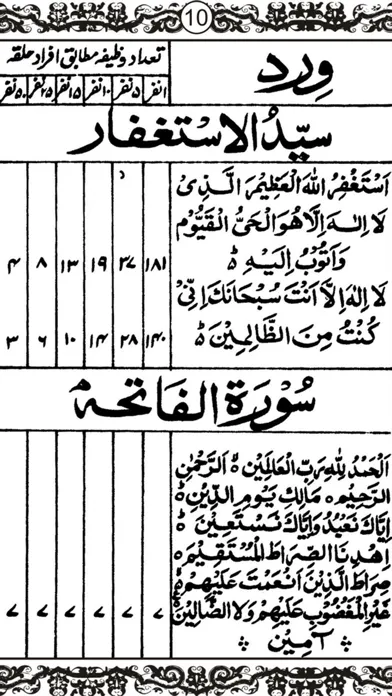 10
تعداد وظیفہ مطابق افراد حلقہ
وِرد
۱نفر ۵نفر ۱۰نفر ۱۵نفر ۲۵نفر ۵۰نفر
سیّدُ الاِسْتغفار
اَسْتَغْفِرُ اللهَ الْعَظِيْمَ الَّذِىْ
لَا اِلٰهَ اِلَّا هُوَ الْحَىُّ الْقَيُّوْمُ
وَاَتُوْبُ اِلَيْهِ ط
۱۸۱ ۳۷ ۱۹ ۱۳ ۸ ۴
لَا اِلٰهَ اِلَّا اَنْتَ سُبْحَانَكَ اِنِّىْ
كُنْتُ مِنَ الظَّالِمِيْنَ ط
۱۴۰ ۲۸ ۱۴ ۱۰ ۶ ۳
سُوْرَةُ الفَاتحہ
اَلْحَمْدُ لِلّٰهِ رَبِّ الْعَالَمِيْنَ ط اَلرَّحْمٰنِ
الرَّحِيْمِ ہ مَالِكِ يَوْمِ الدِّيْنِ ط
اِيَّاكَ نَعْبُدُ وَاِيَّاكَ نَسْتَعِيْنُ ط
اِهْدِنَا الصِّرَاطَ الْمُسْتَقِيْمَ ہ
صِرَاطَ الَّذِيْنَ اَنْعَمْتَ عَلَيْهِمْ ہ
غَيْرِ الْمَغْضُوْبِ عَلَيْهِمْ وَلَا الضَّالِّيْنَ ط
۷ ۷ ۷ ۷ ۷ ۷
آمِيْن